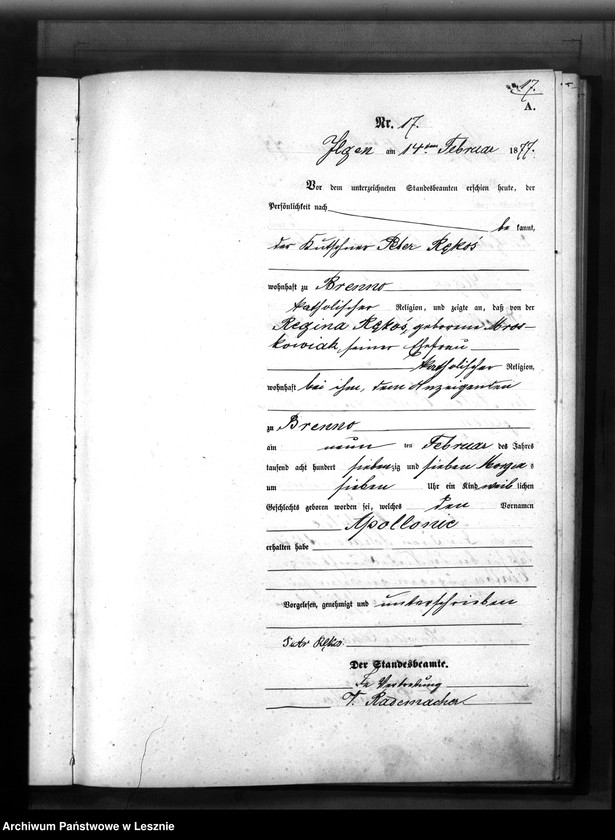 17.
A.
Nr. 17.
Ilgen am 14ten Februar 1877.
Vor dem unterzeichneten Standesbeamten erschien heute, der
Persönlichkeit nach
be kannt,
der Kutschner Peter Rękoś
wohnhaft zu Brenno
katholischer Religion, und zeigte an, daß von der
Regina Rękoś, geborene Mros-
kowiak, seiner Ehefrau
katholischer Religion,
wohnhaft bei ihm, dem Anzeigenden
zu Brenno
am neun ten Februar des Jahres
tausend acht hundert siebenzig und sieben Morgen s
um sieben Uhr ein Kind weib lichen
Geschlechts geboren worden sei, welches den Vornamen
Apollonie
erhalten habe
Vorgelesen, genehmigt und unterschrieben
Rękoś.
Der Standesbeamte.
In Vertretung
Rademacher
Archiwum Państwowe w Lesznie